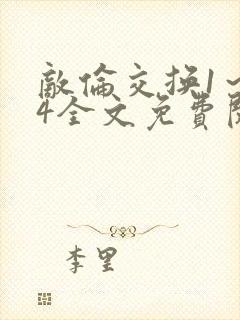 敵倫交換1~
4全文免費閱
李里